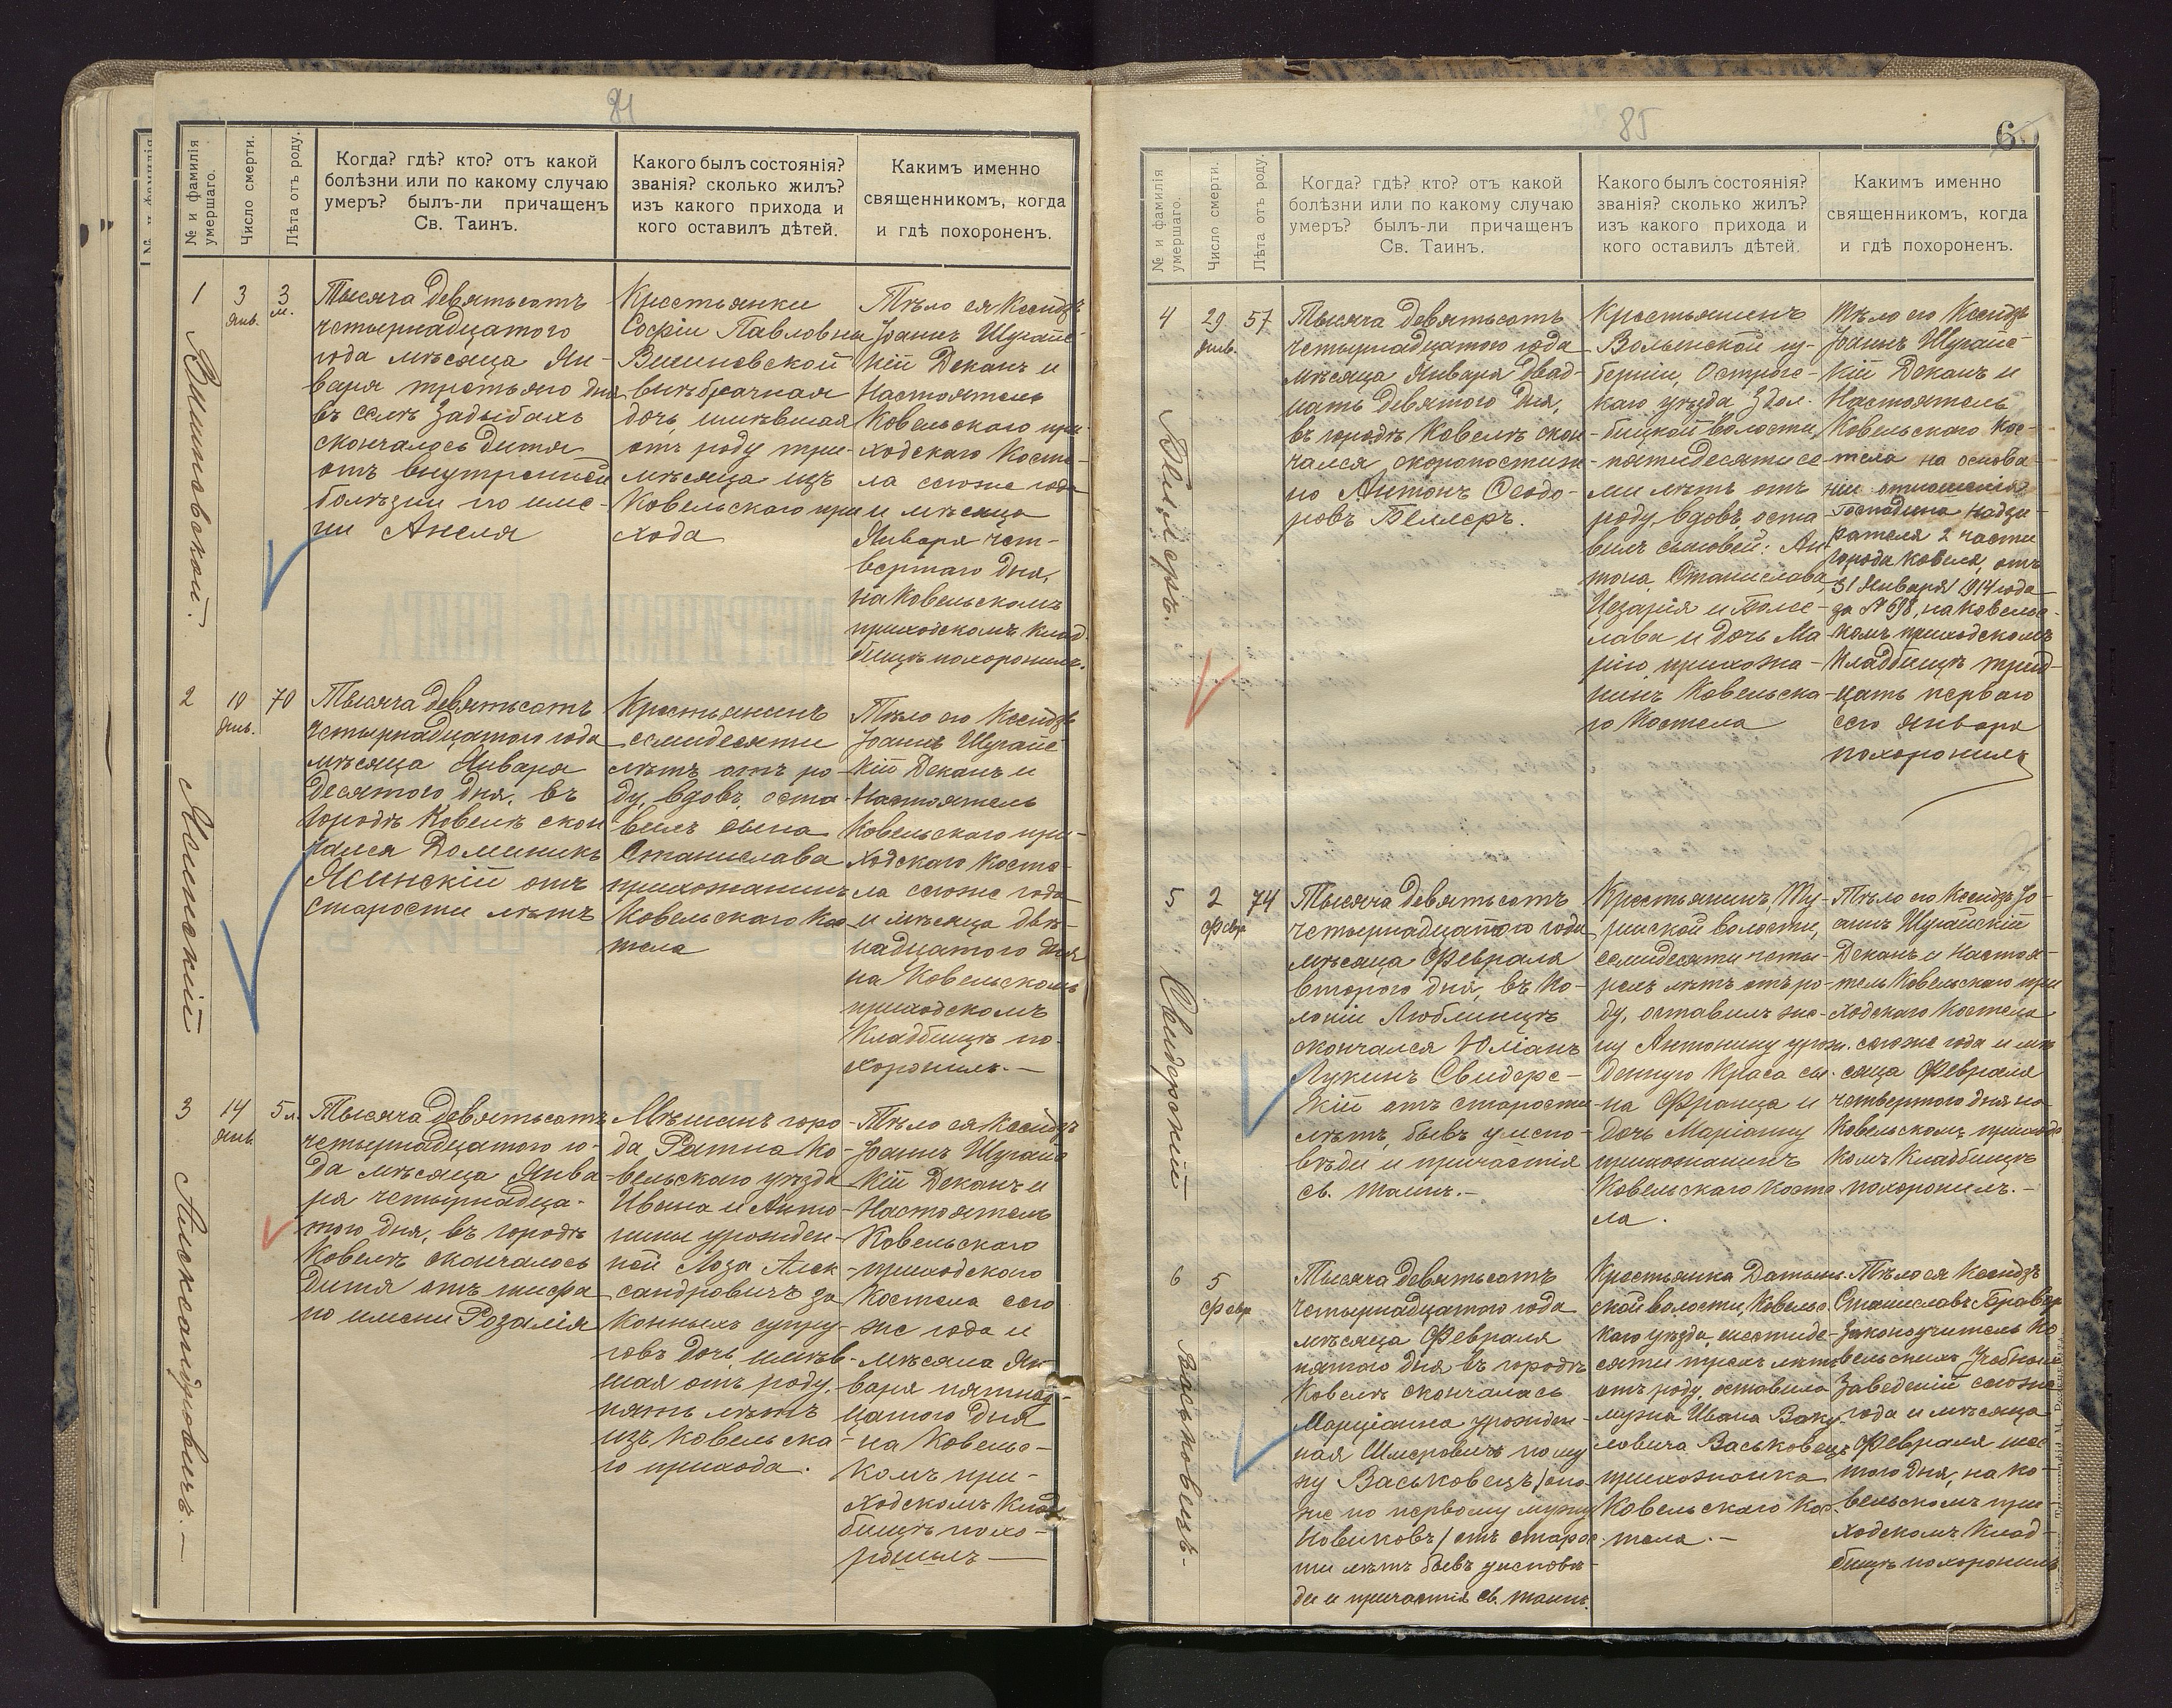 84
№ и фамилія
умершаго.
Число смерти.
Лѣта отъ роду.
Когда? гдѣ? кто? отъ какой
болѣзни или по какому случаю
умеръ? былъ-ли причащенъ
Св. Таинъ.
Какого былъ состоянія?
званія? сколько жилъ?
изъ какого прихода и
кого оставилъ дѣтей.
Какимъ именно
священникомъ, когда
и гдѣ похороненъ.
1
Вишновской.
3
Янв.
3
м.
Тысяча девятьсотъ
четырнадцатого
года мѣсяца Ян-
варя третьяго дня
въ селѣ Задыбахъ
скончалось дитя
отъ внутренней
болѣзни по име-
ни Анеля
Крестьянки
Софіи Павловны
Вишновской
внѣбрачная
дочь, имѣвшая
отъ роду три
мѣсяца изъ
Ковельскаго при
хода
Тѣло ея Ксендзъ
Іоаннъ Шугайс
кій Деканъ и
Настоятель
Ковельскаго при
ходскаго Косте-
ла сегоже года
и мѣсяца
Января чет-
вертаго дня,
на Ковельскомъ
приходскомъ Клад
бищѣ похоронилъ.
2
Ясинскій
10
Янв.
70
Тысяча девятьсотъ
четырнадцатого года
мѣсяца Января
десятого дня, въ
городѣ Ковелѣ скон
чался Доминикъ
Ясинскій отъ
старости лѣтъ
Крестьянинъ
семидесяти
лѣтъ отъ ро-
ду, вдовъ, оста-
вилъ сына
Станислава
прихожанинъ
Ковельскаго Кос
тела
Тѣло его Ксендзъ
Іоаннъ Шугайс
кій Деканъ и
Настоятель
Ковельскаго при-
ходскаго Косте-
ла сегоже года
и мѣсяца двѣ-
надцатого дня
на Ковельскомъ
приходскомъ
Кладбищѣ по-
хоронилъ.—
3
Александровичъ.—
14
Янв.
5 л.
Тысяча девятьсотъ
четырнадцатого го-
да мѣсяца Янва
ря четырнадца-
того дня, въ городѣ
Ковелѣ скончалось
дитя отъ тифа
по имени Розалія
Мѣщанъ горо
да Ратна Ко-
вельскаго уѣзда
Ивана и Анто-
нины урожден-
ной Лоза Алек
сандровичъ за
конныхъ супру-
говъ дочь, имѣв-
шая отъ роду
пять лѣтъ
изъ Ковельска-
го прихода.
Тѣло ея Ксендзъ
Іоаннъ Шугайс
кій Деканъ и
Настоятель
Ковельскаго
приходскаго
Костела сего
же года и
мѣсяца Ян-
варя пятнад-
цатого дня
на Ковельс-
комъ при-
ходскомъ Клад
бищѣ похо-
ронилъ—
85
6
№ и фамилія
умершаго.
Число смерти.
Лѣта отъ роду.
Когда? гдѣ? кто? отъ какой
болѣзни или по какому случаю
умеръ? былъ-ли причащенъ
Св. Таинъ.
Какого былъ состоянія?
званія? сколько жилъ?
изъ какого прихода и
кого оставилъ дѣтей.
Какимъ именно
священникомъ, когда
и гдѣ похороненъ.
4
29
Янв.
57
Тысяча девятьсотъ
четырнадцатого года
мѣсяца Января двад-
цать девятого дня,
въ городѣ Ковелѣ скон
чался скоропостиж-
но Антонъ Ѳеодо-
ровъ
Крестьянинъ
Волынской гу-
берніи, Острогс-
каго уѣзда Здол-
бицкой волости,
пятидесяти се-
ми лѣтъ отъ
роду, вдовъ, оста
вилъ сыновей: Ан-
тона, Станислава,
Цезарія и Болес-
лава и дочь Ма
рію, прихожа-
нинъ Ковельска-
го Костела
Тѣло его Ксендзъ
Іоаннъ Шугайс-
кій Деканъ и
Настоятель
Ковельскаго Кос-
тела на основа-
ніи отношенія
Господина Надзи-
рателя 2 части
города Ковеля, отъ
31 Января 1914 года
за № 698, на Ковельс-
комъ приходскомъ
Кладбищѣ трид-
цать перваго
сего Января
похоронилъ
5.
Свидерскій
2
Февр.
74
Тысяча девятьсотъ
четырнадцатого года
мѣсяца Февраля
второго дня, въ Ко-
лоніи Люблинцѣ
скончался Юліанъ
Лукинъ Свидерс-
кій отъ старости
лѣтъ, бывъ у испо-
вѣди и причастія
св. таинъ.—
Крестьянинъ, Ту-
рійской волости,
семидесяти четы-
рехъ лѣтъ отъ ро-
ду, оставилъ же-
ну Антонину урож-
денную Краса сы-
на Франца и
дочь Маріанну
прихожанинъ
Ковельскаго Косте
ла.
Тѣло его Ксендзъ Іо-
аннъ Шугайскій
Деканъ и Настоя-
тель Ковельскаго при
ходскаго Костела
сегоже года и мѣ
сяца Февраля
четвертого дня на
Ковельскомъ приходс
комъ Кладбищѣ
похоронилъ.—
6
Васьковецъ.
5
Февр.
Тысяча девятьсотъ
четырнадцатого года
мѣсяца Февраля
пятого дня въ городѣ
Ковелѣ скончалась
урожден-
ная по му
жу Васьковецъ /она
же по первому мужу
Новиковъ/ отъ старос-
ти лѣтъ бывъ у исповѣ-
ди и причастія св. таинъ.
Крестьянка
ской волости, Ковельс
каго уѣзда, шестиде-
сяти трехъ лѣтъ
отъ роду, оставила
мужа Ивана Ваку-
ловича Васьковецъ
прихожанка
Ковельскаго Кос-
тела.—
Тѣло ея Ксендзъ
Станиславъ
Законоучитель Ко
вельскихъ Учебныхъ
Заведеній сегоже
года и мѣсяца
Февраля шес
того дня, на Ко-
вельскомъ при-
ходскомъ Клад-
бищѣ похоронилъ